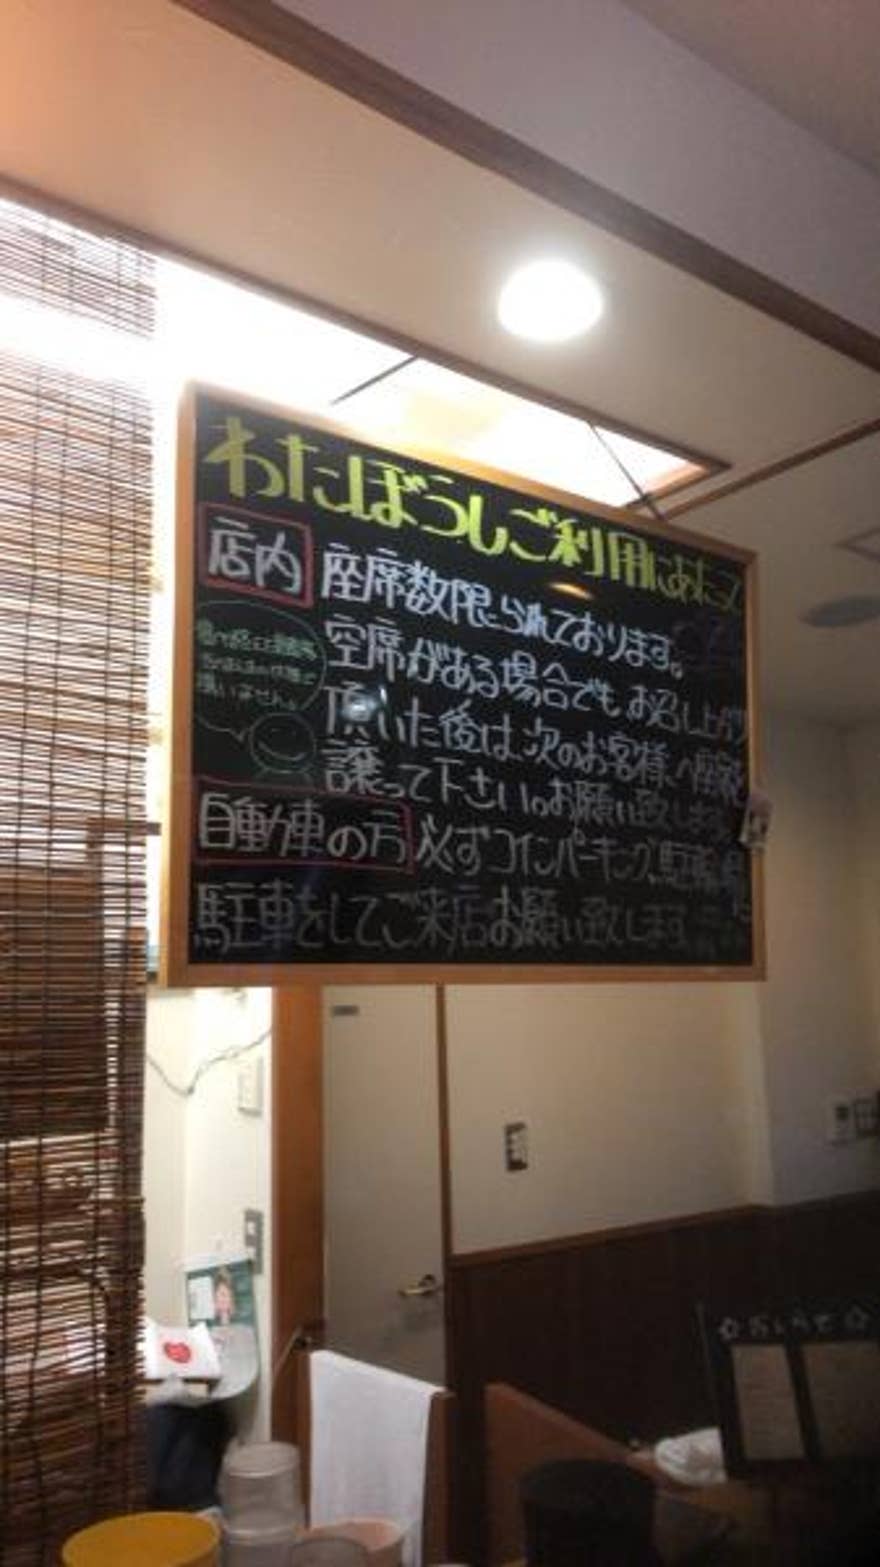 わたぼうしご利用にあたって
店内
座席数限られております。
空席がある場合でもお召し上がり
頂いた後は次のお客様へ座席を
譲って下さい。お願い致します
自動車の方
必ずコインパーキング、駐輪場
駐車をしてご来店お願い致します
おしらせ